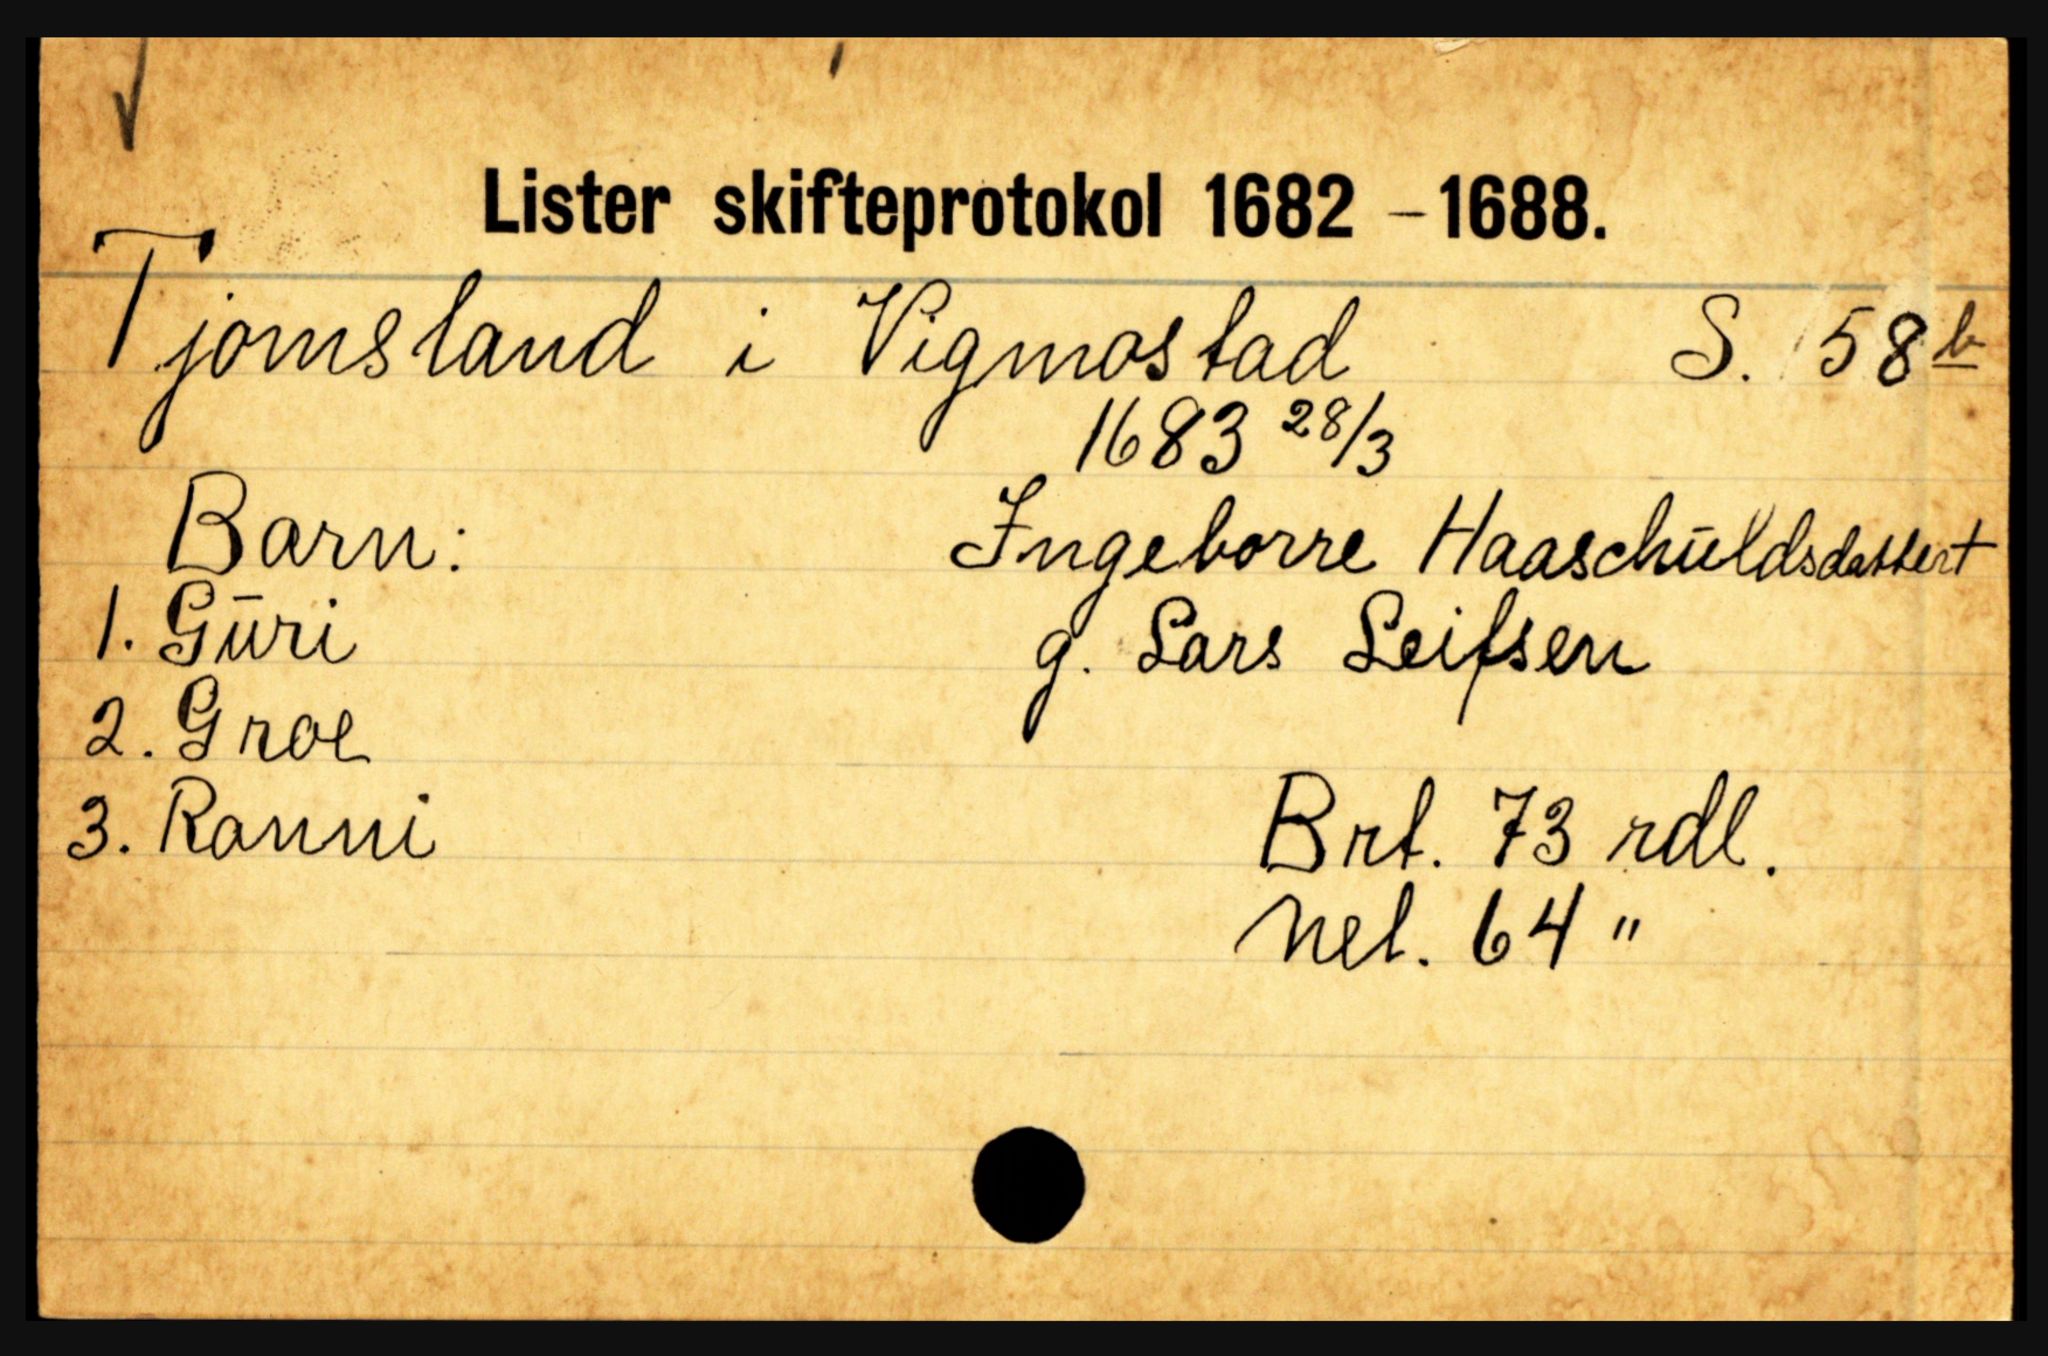 Lister skifteprotokol 1682 - 1688.
Tjomsland i Vigmostad S. 58 b
1683 28/3
Barn: Ingeborre Haaschūldsdatter †
1. Gūri g. Lars Leifsen
2. Groe
3. Ranni Brt. 73 rdl.
Net. 64 "